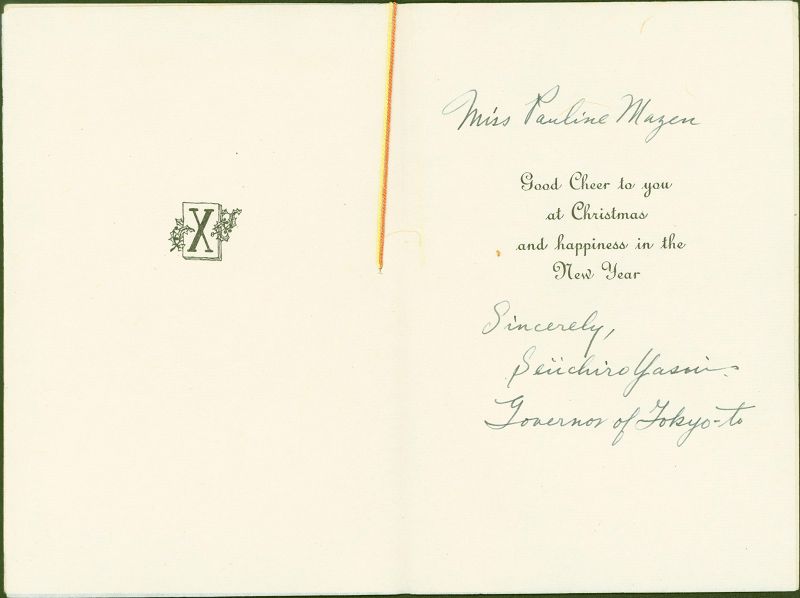 X
Miss Pauline Mazen
Good Cheer to you
at Christmas
and happiness in the
New Year
Sincerely,
Seiichiro Yasui
Governor of Tokyo-to